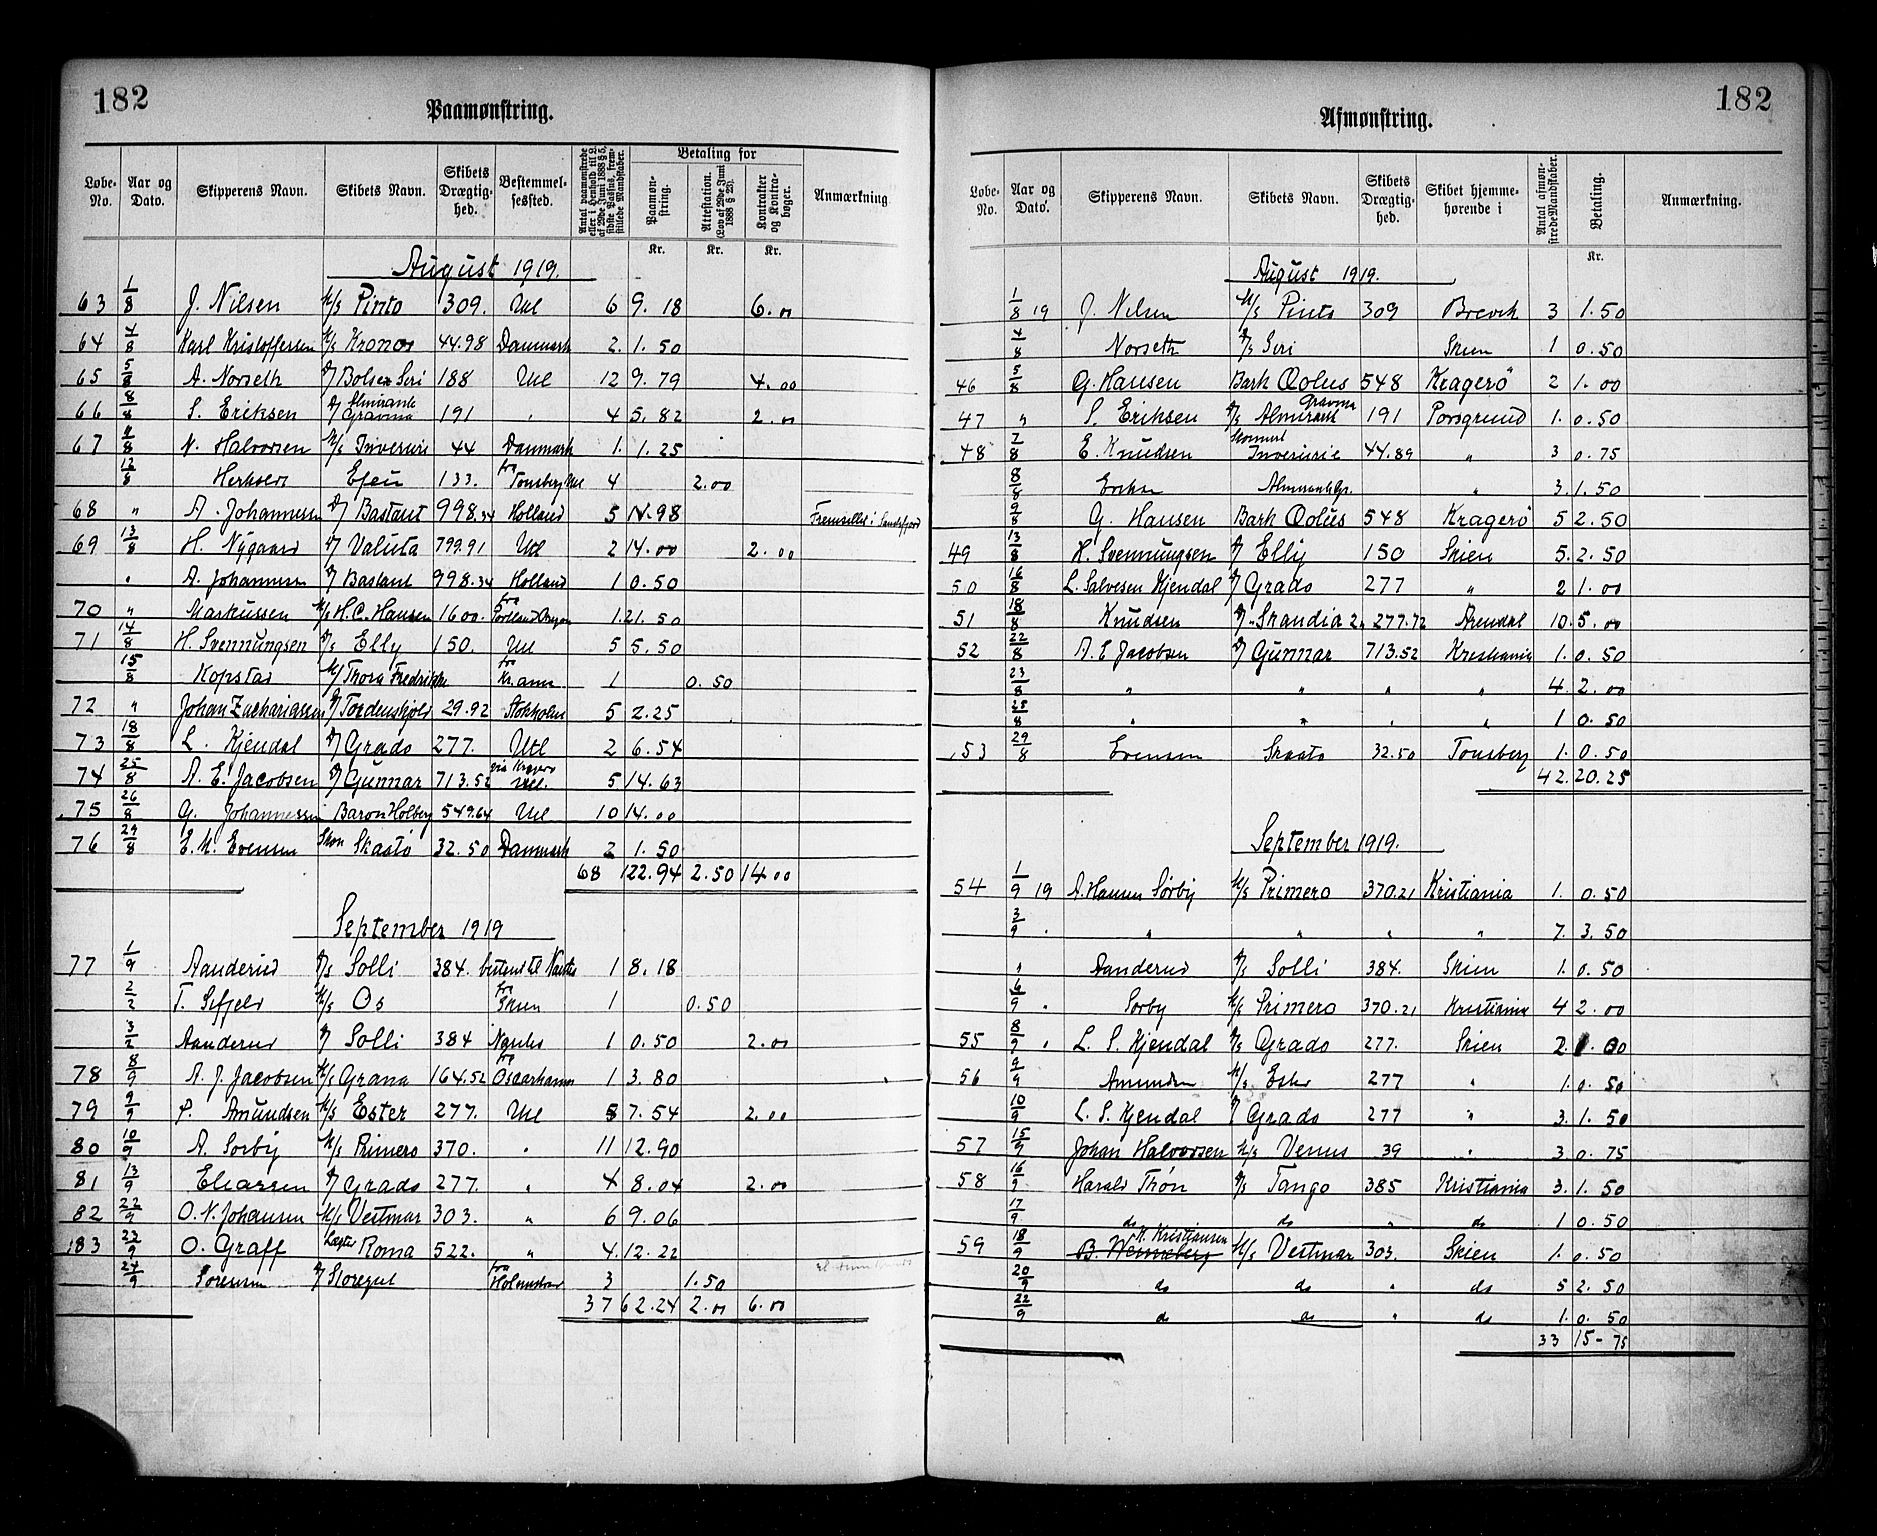 182
Paamønstring.
Løbe-No. Aar og Dato. Skipperens Navn. Skibets Navn. Skibets Drægtig-hed. Bestemmel-sessted. Antal paamønstrede eller i Henhold til L. af 29de Juni 1888 § 5, sidste Passus, frem-stillede Mandskaber. Betaling for Paamøn-string. Attestation. (Lov af 29de Juni 1888 § 23). Kontrakter og Kontra-bøger. Anmærkning
Kr. Kr. Kr.
August 1919.
63 1/8 J. Nilsen M/S Pinto 309. Utl 6 9.18 6.00
64 4/8 Karl Kristoffersen M/S Kronos 44.98 Danmark 2. 1.50
65 5/8 A. Norseth Bolsex Seri 188 Utl 12 9.79 4.00
66 8/8 S. Eriksen Almirante Gravina 191 " 4 5.82 2.00
67 11/8 N. Halvorsen M/S Inveruri 44 Danmark 1. 1.25
12/8 Efeu 133. fra Tønsberg Utl 4 2.00
68 " A. Johannesen Bastant 998.34 Holland 5 14.98 Fremstillet i Sandefjord
69 13/8 H. Nygaard Valuta 799.91 Utl 2 14.00 2.00
" A. Johannesen Bastant 998.34 Holland 1 0.50
70 " Markussen M/S H.C. Hansen 1600. fra Portland Oregon 1. 21.50
71 14/8 H. Svennungsen Elly 150. Utl 5 5.50
15/8 Kopstad Thora Fredrikke fra Kr.ania 1 0.50
72 " Johan Zachariassen Tordenskjold 29.92 Stokholm 5 2.25
73 18/8 L. Kjendal Grado 277. Utl 2 6.54
74 25/8 A. E. Jacobsen Gunnar 713.52 via Kragerø Utl. 5 14.63
75 26/8 G. Johannessen Baron Holberg 549.64 Utl 10 14.00
76 29/8 E. M. Evensen Skon Skaatø 32.50 Danmark 2 1.50
68 122.94 2.50 14.00
September 1919
77 1/9 Aanderud Solli 384. Nantes 1 8.18
2/2 T. M/S Os fra Skien 1 0.50
3/2 Aanderud Solli 384 Nantes 1 0.50 2.00
78 8/9 A. J. Jacobsen M/S Grana 164.52 fra Oscarhamn 1 3.80
79 9/9 P. Amundsen M/S Ester 277. Utl 5 7.54 2.00
80 10/9 A. Sørby M/S Primero 370. " 11 12.90
81 13/9 Eliassen Grado 277. " 4 8.04 2.00
82 22/9 O. N. Johansen M/S Vestmar 303. " 6 9.06
183 23/9 O. Graff Roma 522. " 4. 12.22
24/9 Sorensen Storegut fra Holmestrand 3 1.50
37 62.24 2.00 6.00
182
Afmønstring.
Løbe-No. Aar og Dato. Skipperens Navn. Skibets Navn. Skibets Drægtig-hed. Skibet hjemme-hørende i Antal afmøn-strede Mandskaber. Betaling. Anmærkning.
Kr.
August 1919.
1/8 19 J. Nilsen M/S Pinto 309 Brevik 3 1.50
4/8 Norseth Seri Skien 1 0.50
46 5/8 G. Hansen Bark Qolus 548 Kragerø 2 1.00
47 " S. Eriksen Almirante Gravina 191 Porsgrund 1. 0.50
48 7/8 E. Knudsen Skonnert Inverurie 44.89 " 3 0.75
8/8 Eriksen Almirante Gr. " 3. 1.50
9/8 G. Hansen Bark Qolus 548 Kragerø 5 2.50
49 13/8 H. Svennungsen Elly 150 Skien 5. 2.50
50 16/8 L. Salvesen Kjendal Grado 277 " 2 1.00
51 18/8 Knudsen Skandia 277.72 Arendal 10. 5.00
52 22/8 A. E Jacobsen Gunnar 713.52 Kristiania 1. 0.50
23/8 " " " " 4. 2.00
25/8 " " " " 1 0.50
53 29/8 Evensen Skaatø 32.50 Tønsberg 1. 0.50
42. 20.25
September 1919.
54 1/9 19 A. Hansen Sørby M/S Primero 370.21 Kristiania 1. 0.50
3/9 " " " " " 7. 3.50
" Aanderud Solli 384. Skien 1. 0.50
6/9 " Sørby M/S Primero 370.21 Kristiania 4 2.00
55 8/9 " L. S. Kjendal Grado 277. Skien 2. 1.00
56 9/9 Amundsen M/S Ester 277 " 1. 0.50
10/9 L. S. Kjendal Grado 277 " 3. 1.50
57 15/9 Johan Halvorsen M/S Venus 39 " 3 0.75
58 16/9 Harald Thøn Tango 385 Kristiania 3. 1.50
17/9 do do " do 1 0.50
59 18/9 B. Wenneberg K. Kristiansen M/S Vestmar 303. Skien 1. 0.50
20/9 do do " do 5 2.50
22/9 do do " do 1. 0.50
33 15-75